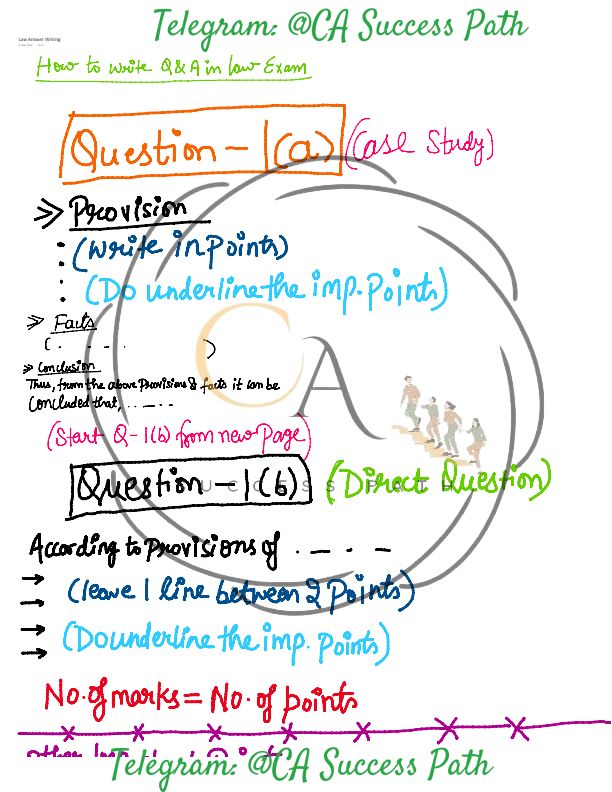 Telegram: @CA Success Path
Law Answer Writing
How to write Q&A in Law Exam
Question - 1(a) (Case Study)
>> Provision
: (Write in points)
: (Do underline the imp. Points)
>> Facts
( - - - - )
>> Conclusion
Thus, from the above Provisions & facts it can be
Concluded that, ..-...
(Start Q-1(b) from new Page)
Question - 1(b) (Direct Question)
SUCCESS PATH
According to Provisions of . - . - -
→ (leave 1 line between 2 Points)
→
→ (Do underline the imp. Points)
→
No. of marks = No. of points
Telegram: @CA Success Path